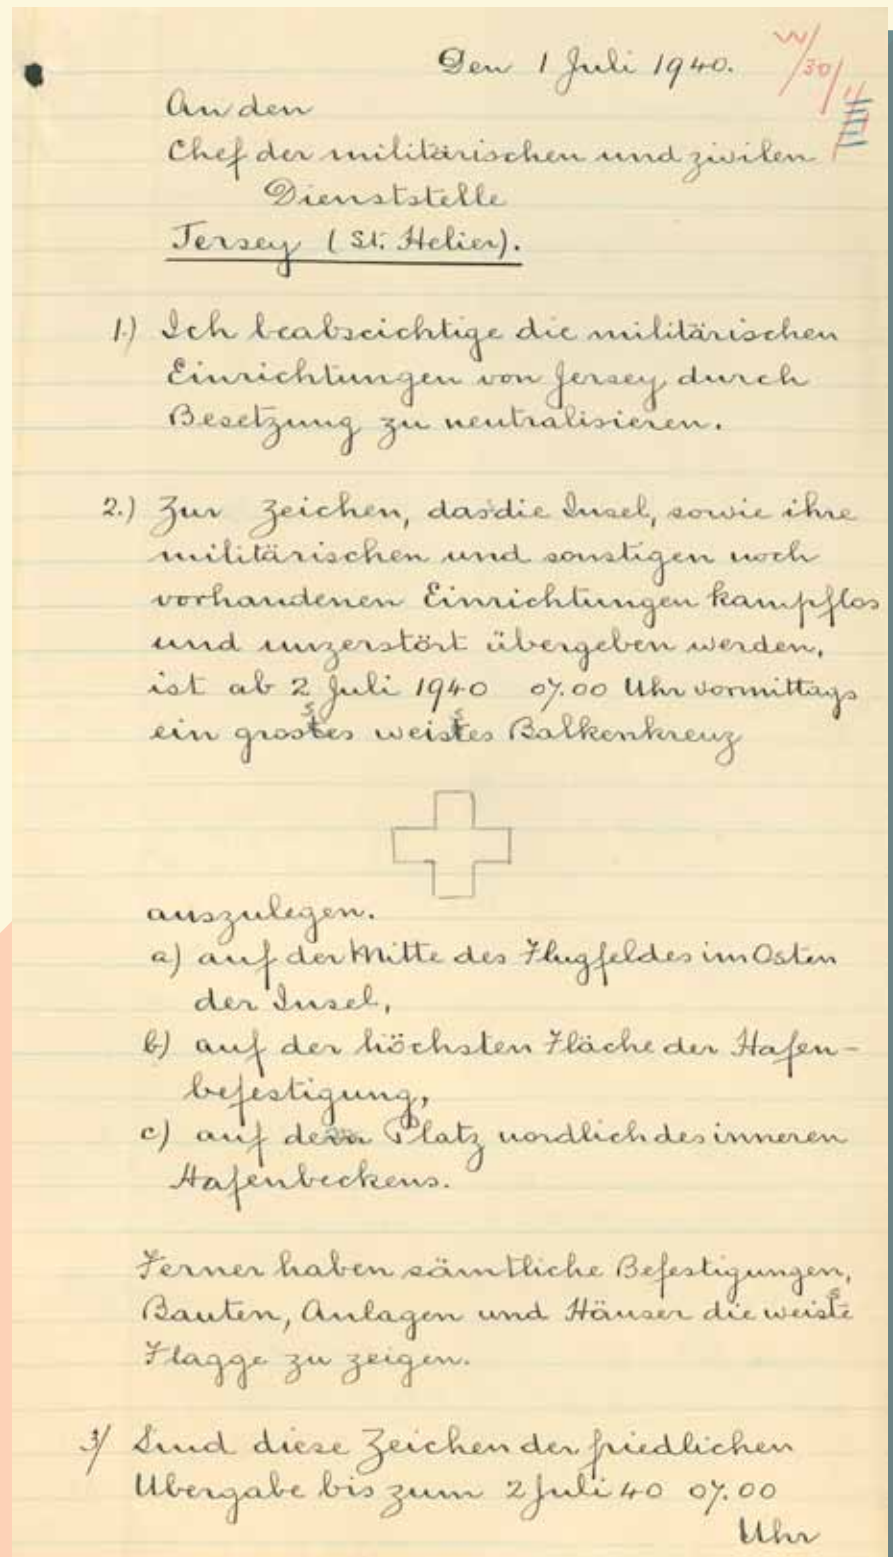 Den 1 Juli 1940.
W/30/4
An den
Chef der militärischen und zivilen
Dienststelle
Jersey (St. Helier).
1.) Ich beabseichtige die militärischen
Einrichtungen von Jersey durch
Besetzung zu neutralisieren.
2.) Zur Zeichen, das die Insel, sowie ihre
militärischen und sonstigen noch
vorhandenen Einrichtungen kampflos
und unzerstört übergeben werden,
ist ab 2 Juli 1940 07.00 Uhr vormittags
ein grosses weisses Balkenkreuz
auszulegen.
a) auf der Mitte des Flugfeldes im Osten
der Insel,
b) auf der höchsten Fläche der Hafen-
befestigung,
c) auf dem Platz nordlich des inneren
Hafenbeckens.
Ferner haben sämtliche Befestigungen,
Bauten, Anlagen und Häuser die weisse
Flagge zu zeigen.
3/ Sind diese Zeichen der friedlichen
Ubergabe bis zum 2 Juli 40 07.00
Uhr